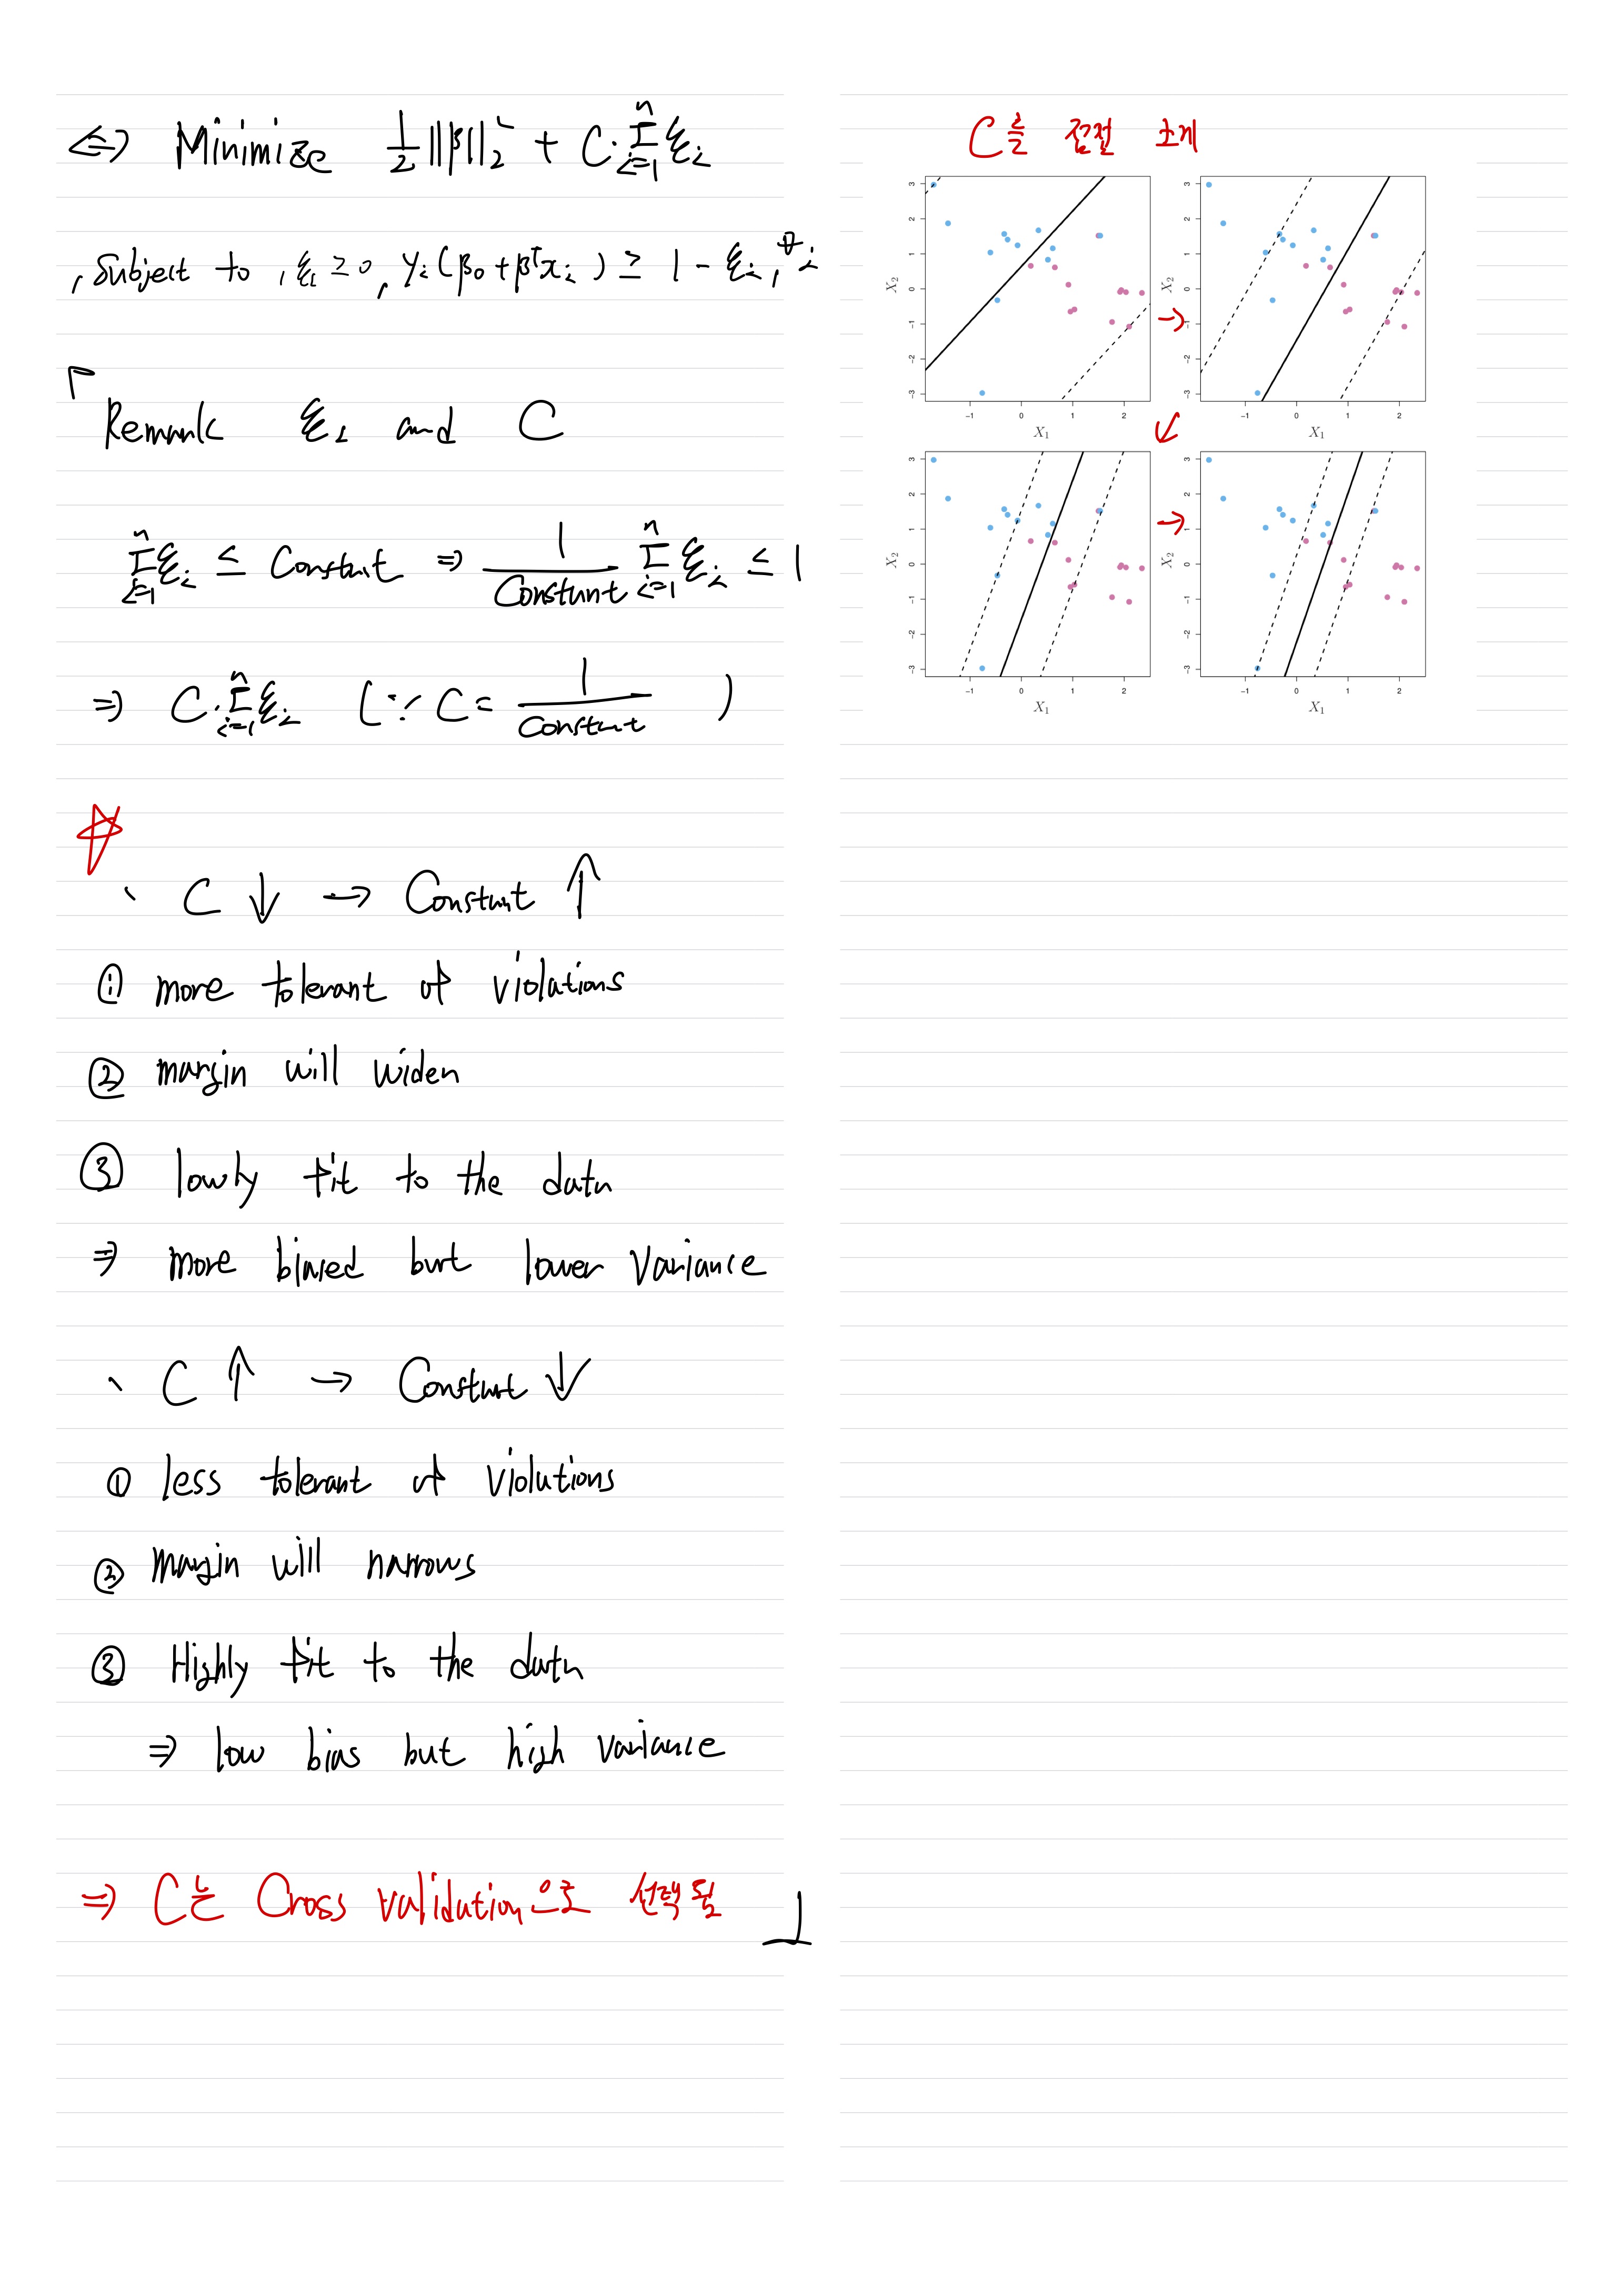 ⇔ Minimize 1/2 ||β||₂² + C·Σᵢ₌₁ⁿ ξᵢ
, Subject to , ξᵢ ≥ 0, yᵢ(β₀ + βᵀxᵢ) ≥ 1 - ξᵢ, ∀i
「Remark ξᵢ and C
Σᵢ₌₁ⁿ ξᵢ ≤ Constant ⇒ 1/Constant Σᵢ₌₁ⁿ ξᵢ ≤ 1
⇒ C·Σᵢ₌₁ⁿ ξᵢ (∵ C = 1/Constant )
☆
· C ↓ → Constant ↑
① more tolerant of violations
② margin will widen
③ lowly fit to the data
⇒ more biased but lower variance
· C ↑ → Constant ↓
① less tolerant of violations
② margin will narrows
③ Highly fit to the data
⇒ low bias but high variance
⇒ C는 Cross validation으로 선택됨 」
C를 점점 크게
3 2 1 0 -1 -2 -3
X₂
-1 0 1 2
X₁
→
3 2 1 0 -1 -2 -3
X₂
-1 0 1 2
X₁
↙
3 2 1 0 -1 -2 -3
X₂
-1 0 1 2
X₁
→
3 2 1 0 -1 -2 -3
X₂
-1 0 1 2
X₁